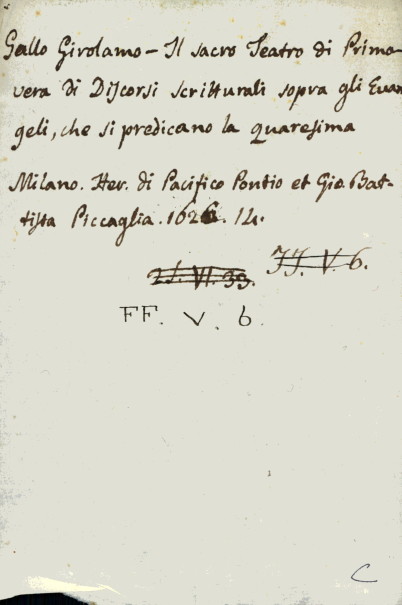 Gallo Girolamo - Il sacro Teatro di Prima-
vera di Discorsi scritturali sopra gli Evan
geli, che si predicano la quaresima
Milano. Her. di Pacifico Pontio et Gio. Bat-
tista Piccaglia. 1626. 14.
FF. V. 6.
FF. V. 6.
C